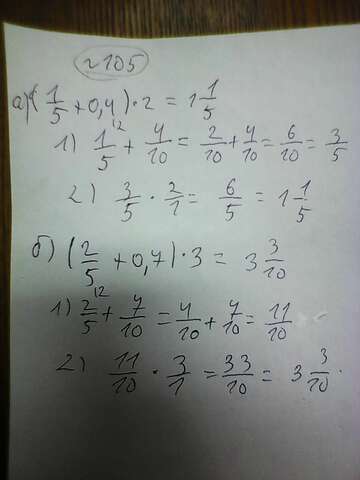 №105
а) (1/5 + 0,4) · 2 = 1 1/5
1) 1/5 ^(2 + 4/10 = 2/10 + 4/10 = 6/10 = 3/5
2) 3/5 · 2/1 = 6/5 = 1 1/5
б) (2/5 + 0,7) · 3 = 3 3/10
1) 2/5 ^(2 + 7/10 = 4/10 + 7/10 = 11/10
2) 11/10 · 3/1 = 33/10 = 3 3/10.